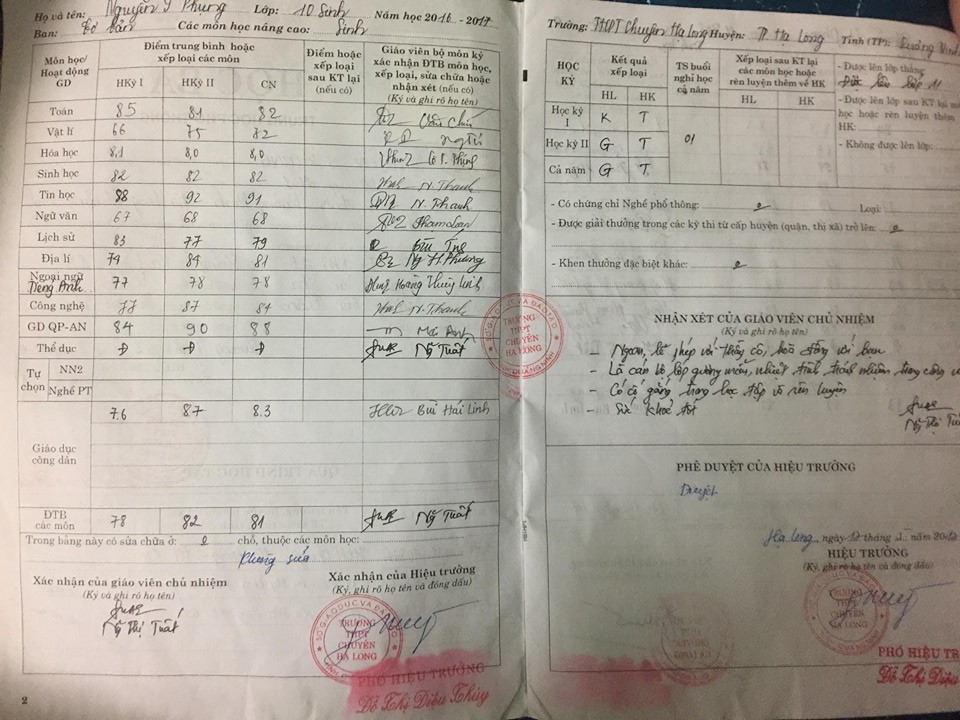 Họ và tên: Nguyễn Ý Phụng Lớp: 10 Sinh Năm học 2016 - 2017
Ban: Cơ bản Các môn học nâng cao: Sinh
Môn học/ Hoạt động GD
Điểm trung bình hoặc xếp loại các môn
HKỳ I HKỳ II CN
Điểm hoặc xếp loại sau KT lại (nếu có)
Giáo viên bộ môn ký xác nhận ĐTB môn học, xếp loại, sửa chữa hoặc nhận xét (nếu có)
(Ký và ghi rõ họ tên)
Toán 85 81 82
Vật lí 66 75 72
Hóa học 8,1 8,0 8,0
Sinh học 82 82 82 N. Thanh
Tin học 88 92 91 N. Thanh
Ngữ văn 67 68 68
Lịch sử 83 77 79
Địa lí 74 84 81 Ng H. Phương
Ngoại ngữ Tiếng Anh 77 78 78 Hoàng Thùy Linh
Công nghệ 77 87 84 N. Thanh
GD QP-AN 84 90 88 Mai Anh
Thể dục Đ Đ Đ Ng Tuất
Tự chọn
NN2
Nghề PT
7.6 8.7 8.3 Bùi Hải Linh
Giáo dục công dân
ĐTB các môn 78 82 81 Ng Tuất
Trong bảng này có sửa chữa ở: chỗ, thuộc các môn học:
Không sửa
Xác nhận của giáo viên chủ nhiệm
(Ký và ghi rõ họ tên)
Ng Thị Tuất
Xác nhận của Hiệu trưởng
(Ký, ghi rõ họ tên và đóng dấu)
SỞ GIÁO DỤC VÀ ĐÀO TẠO
TRƯỜNG
THPT
CHUYÊN
HẠ LONG
PHÓ HIỆU TRƯỞNG
Đỗ Thị Diệu Thúy
2
Trường: THPT Chuyên Hạ Long Huyện: TP Hạ Long Tỉnh (TP): Quảng Ninh
HỌC KỲ
Kết quả xếp loại
HL HK
TS buổi nghỉ học cả năm
Xếp loại sau KT lại các môn học hoặc rèn luyện thêm về HK
HL HK
Học kỳ I K T
Học kỳ II G T
Cả năm G T
01
- Được lên lớp thẳng
Được lên lớp 11
- Được lên lớp sau KT lại
học hoặc rèn luyện thêm
HK:
- Không được lên lớp:
- Có chứng chỉ Nghề phổ thông: Loại:
- Được giải thưởng trong các kỳ thi từ cấp huyện (quận, thị xã) trở lên:
- Khen thưởng đặc biệt khác:
SỞ GIÁO DỤC VÀ ĐÀO TẠO
TRƯỜNG
THPT
CHUYÊN
HẠ LONG
NHẬN XÉT CỦA GIÁO VIÊN CHỦ NHIỆM
(Ký và ghi rõ họ tên)
- Ngoan, lễ phép với thầy cô, hoà đồng với bạn
- Là cán bộ lớp gương mẫu, nhiệt tình, trách nhiệm trong công
- Có cố gắng trong học tập và rèn luyện
- Sức khoẻ tốt
Ng Thị Tuất
PHÊ DUYỆT CỦA HIỆU TRƯỞNG
Duyệt
Hạ Long, ngày tháng năm
HIỆU TRƯỞNG
(Ký, ghi rõ họ tên và đóng dấu)
TRƯỜNG
THPT
CHUYÊN
HẠ LONG
PHÓ HIỆU TR
Đỗ Thị Diệu